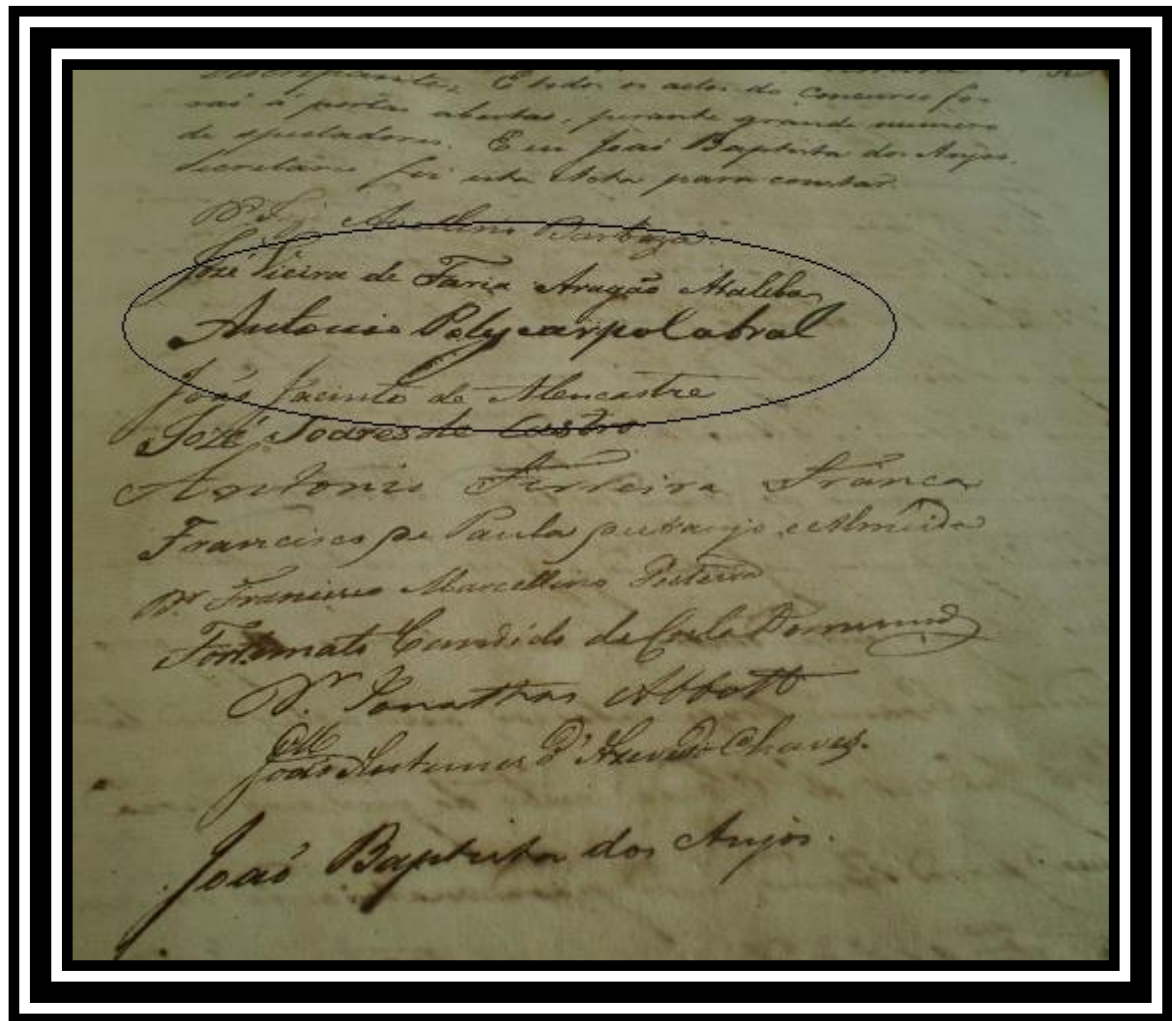 E todos os actos do concurso fo-
raõ á portas abertas, perante grande numero
de spectadores. E eu Joaõ Baptista dos Anjos,
Secretario fiz esta Acta para constar.
Dr. Avellino Barboza
José Vieira de Faria Aragão Ataliba
Antonio Polycarpo Cabral
João Jacinto de Alencastre
Jozé Soares de Castro
Antonio Ferreira França
Francisco de Paula de Araujo e Almeida
Dr. Francisco Marcellino
Fortunato Candido da Costa Dormund
Dr. Jonathas Abbott
João Antunes d'Azevedo Chaves.
Joaõ Baptista dos Anjos.